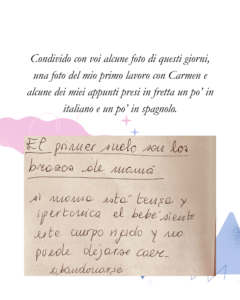 Condivido con voi alcune foto di questi giorni,
una foto del mio primo lavoro con Carmen e
alcune dei miei appunti presi in fretta un po' in
italiano e un po' in spagnolo.
El primer suelo son los
brazos de mamá
si mama está tensa y
ipertonica el bebé siente
este cuerpo rigido y no
puede dejarse caer
abandonarse